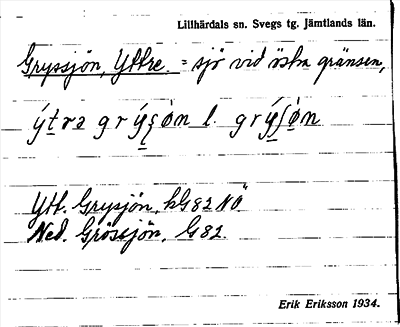 Lillhärdals sn. Svegs tg. Jämtlands län.
Gryssjön, Yttre. = sjö vid östra gränsen,
ýtrə grýʂòn l. grýʃòn
Ytt. Grysjön, kG82 NÖ.
Ned. Grössjön, G82.
Erik Eriksson 1934.